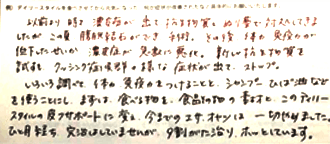 以前より時々湿疹が出て抗生物質とぬり薬で対処してきま
したがこの夏 膀胱結石ができ 利用。その後 体の免疫力が
低下したせいか 湿疹が急激に悪化。新しい抗生物質を
試すもクッシング症候群の様な症状が出て、ストップ。
いろいろ調べて 体の免疫力をつけることと、シャンプー ひば油など
を使うことにし、まずは、食べる物を、食品の物の素材と、このディリー
スタイルの皮フサポートに変え、今までのエサ、オヤツは一切やめました。
ひと月経ち、完治はしていませんが、9割がた治り、ホッとしています。